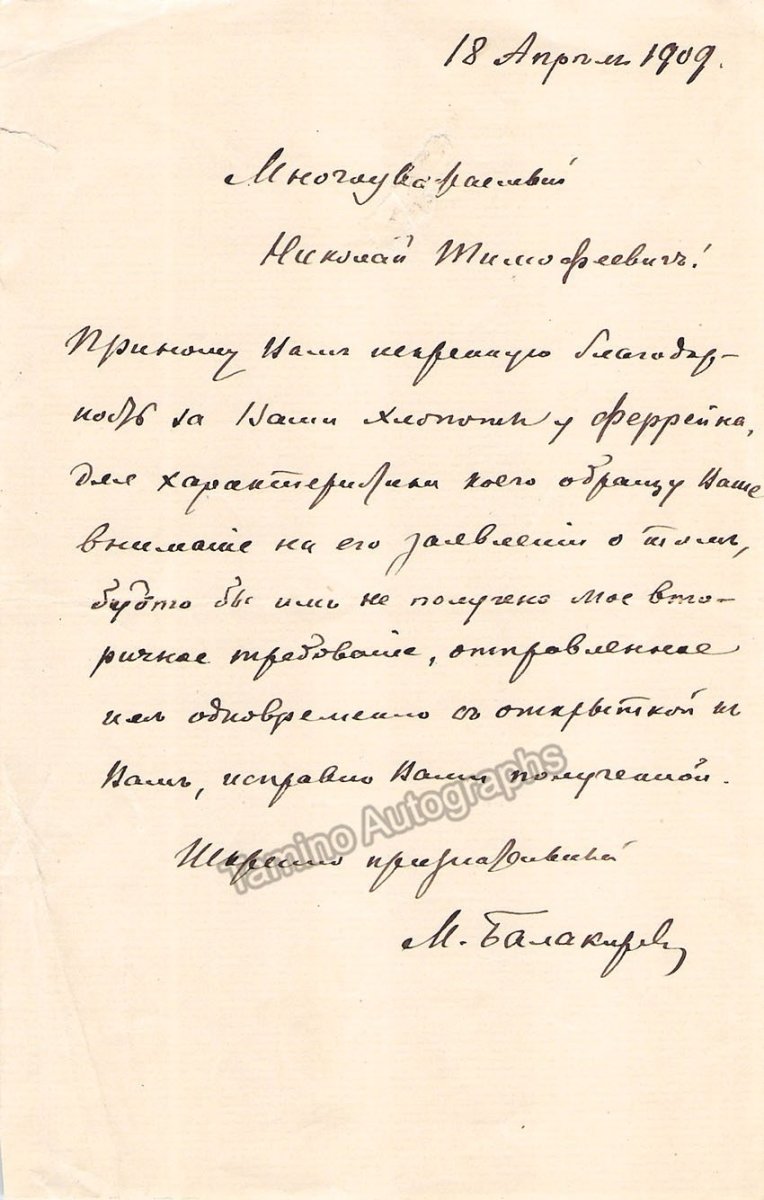 18 Апрѣля 1909.
Многоуважаемый
Николай Тимофеевичъ!
Приношу Вамъ искреннюю благодар-
ность за Ваши хлопоты у Феррейна,
для характеристики коего обращу Ваше
вниманіе на его заявленіи о томъ,
будто бы имъ не получено мое вто-
ричное требованіе, отправленное
одновременно съ открыткой къ
Вамъ, исправно Вами полученной.
Искренно признательный
М. Балакирев
Tamino Autographs